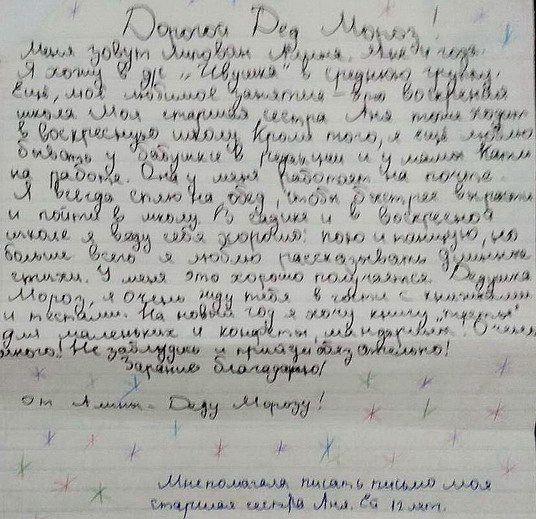 Дорогой Дед Мороз!
Меня зовут Алина. Мне 4 года.
Я хожу в д/с "Ивушка" в среднюю группу.
Ещё, моё любимое занятие - это воскресная
школа. Моя старшая сестра Аня тоже ходит
в воскресную школу. Кроме того, я ещё люблю
бывать у бабушки в редакции и у мамы Кати
на работе. Она у меня работает на почте.
Я всегда сплю на обед, чтобы быстрее вырасти
и пойти в школу. В садике и в воскресной
школе я веду себя хорошо: пою и танцую, но
больше всего я люблю рассказывать длинные
стихи. У меня это хорошо получается. Дедушка
Мороз, я очень жду тебя в гости с книжками
и тестами. На новый год я хочу книгу
для маленьких и конфеты, мандарины! Очень
много! Не заблудись и приходи обязательно!
Зарание благодарю!
От Алины - Деду Морозу!
Мне помогала писать письмо моя
старшая сестра Аня. Ей 12 лет.